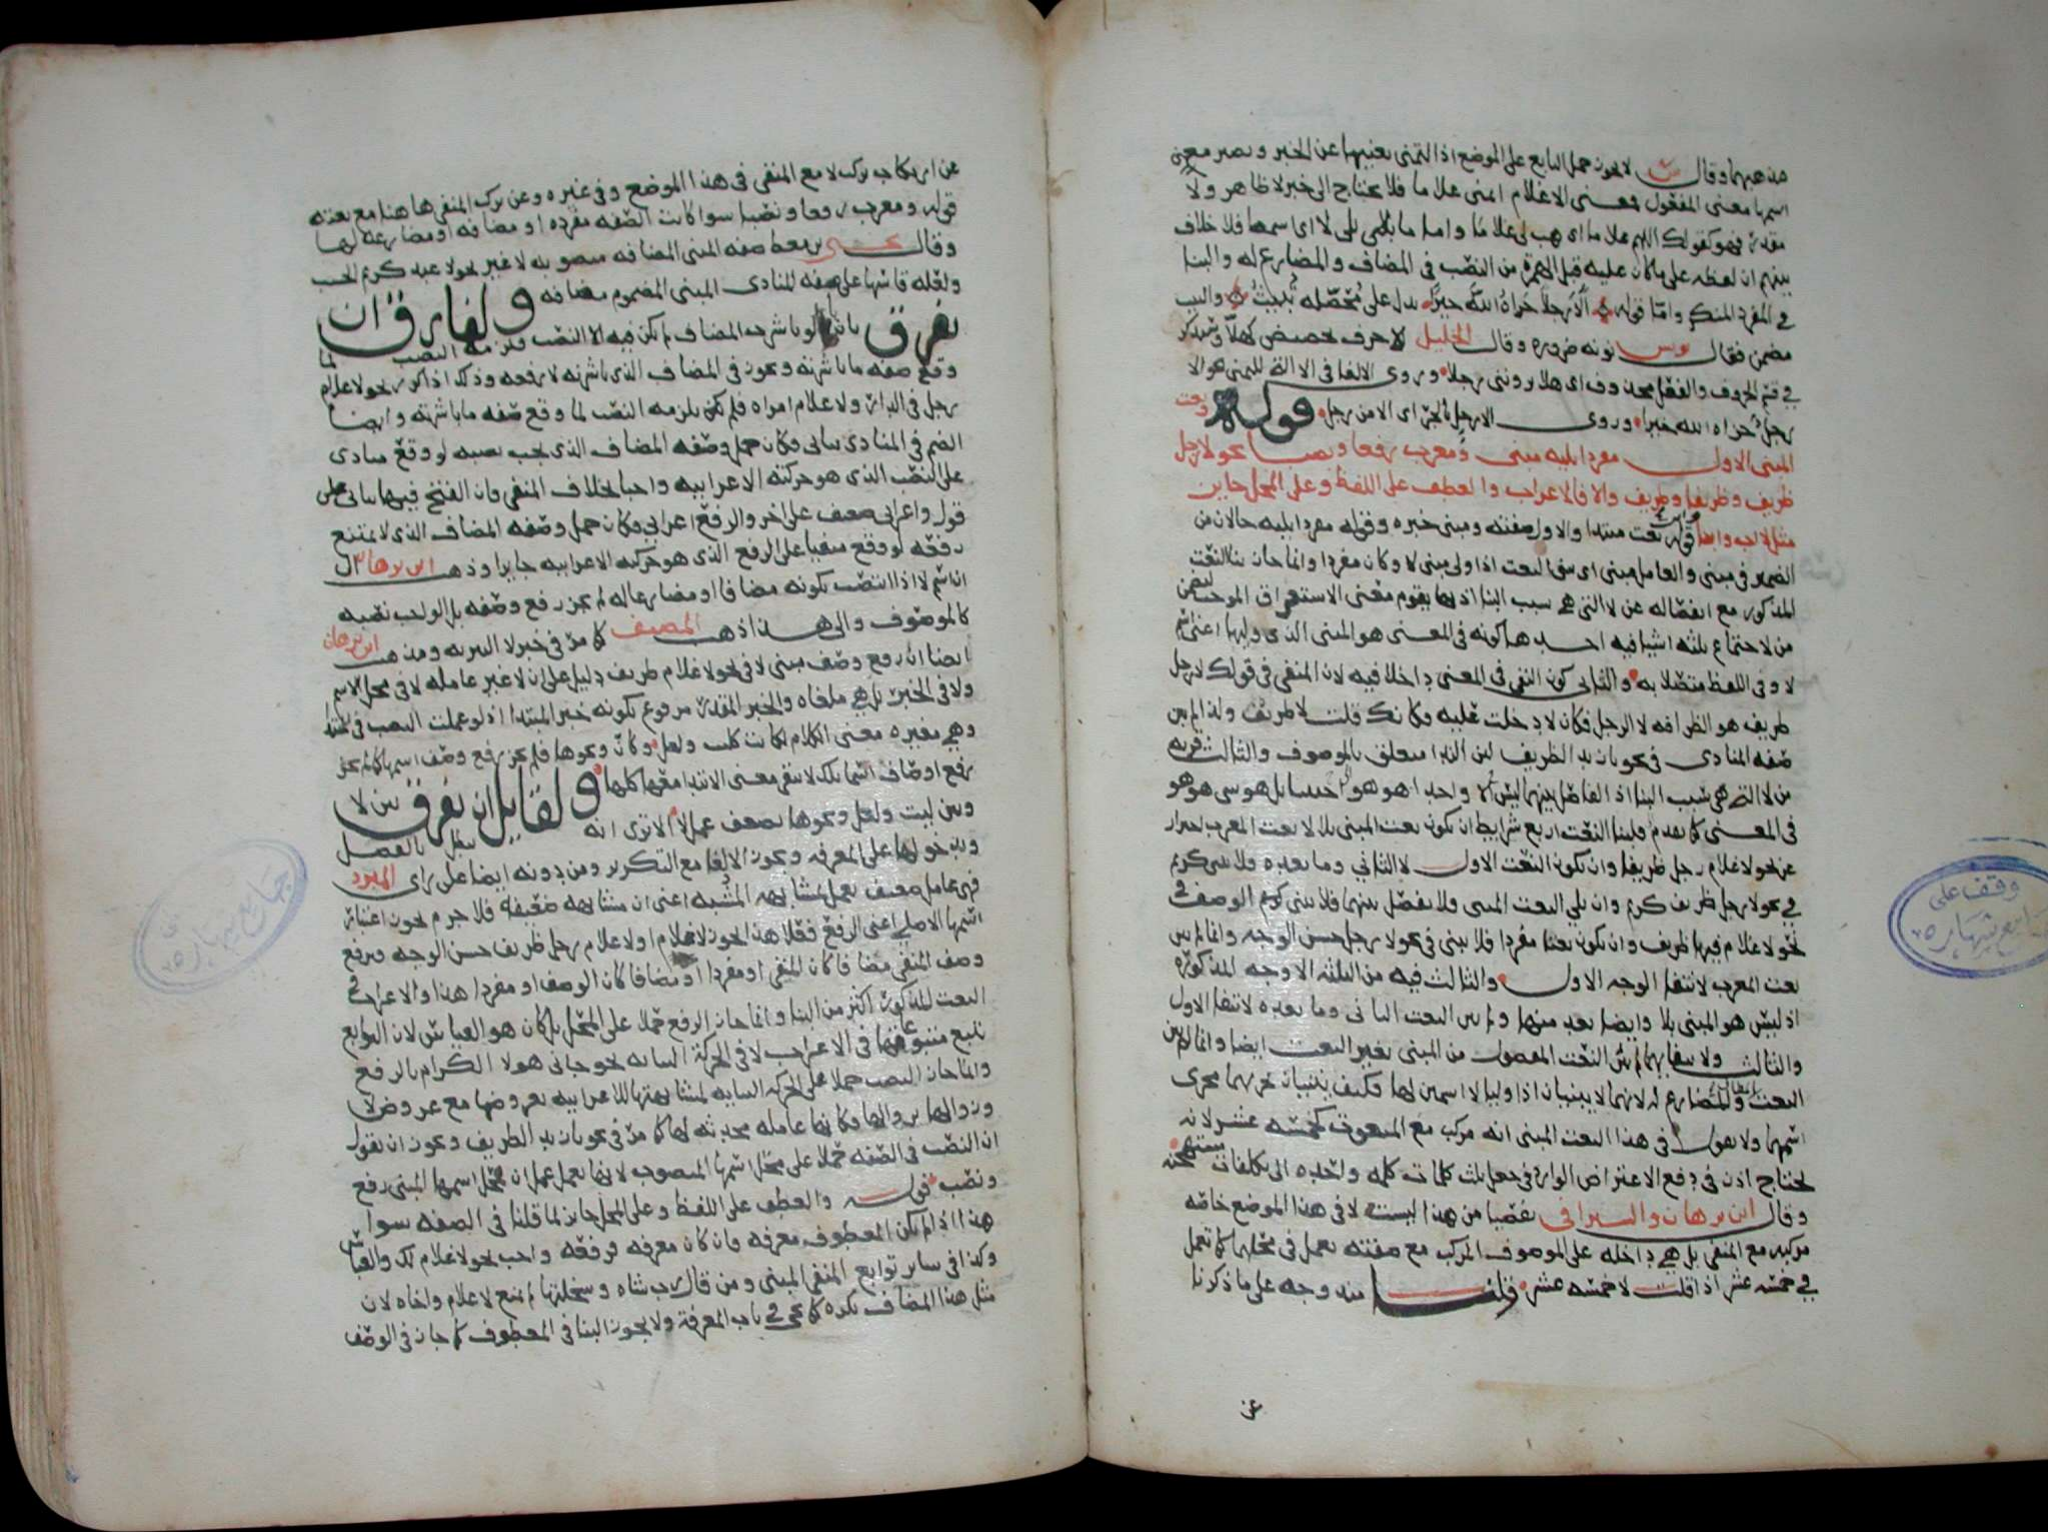 مذهبهما وقال س لا يجوز حمل التابع على الموضع اذ التمنى يغنيها عن الخبر ويصير معنى
اسمها معنى المفعول فمعنى الاغلام اتمنى غلاما فلا يحتاج الى خبر لا ظاهر ولا
مقدر فهو كقولك اللهم غلاما اى هب لى غلاما واما ما يلى لا اى اسمها فلا خلاف
بينهم ان لفظه على ما كان عليه قبل الهمزة من النصب فى المضاف والمضارع له والبنا
فى المفرد المنكر واما قوله الا رجلا جزاه الله خيرا يدل على محصلة تبيت والبيت
مضمن فقال يونس نونه ضرورة وقال الخليل الا حرف تحضيض كهلا وسيذكر
فى قسم الحروف والفعل محذوف اى هلا تروننى رجلا ويروى الالغا فى الا التى للتمنى نحو الا
رجل جزاه الله خيرا وروى الا رجل بالجر اى الا من رجل قوله ونعت
المبنى الاول مفردا يليه مبنى ومعرب رفعا ونصبا نحو لا رجل
ظريف وظريفا وظريف والا فالاعراب والعطف على اللفظ وعلى المحل جايز
مثل لا اب وابنا وابن قوله نعت مبتدا والاول صفته ومبنى خبره وقوله مفردا يليه حالان من
الضمير فى مبنى والعامل مبنى اى يبنى النعت اذا ولى مبنى لا وكان مفردا وانما جاز بنا النعت
المذكور مع انفصاله عن لا التى هى سبب البنا اذ بها يقوم معنى الاستغراق الموجب لتضمن
من لاجتماع ثلثه اشيا فيه احدها كونه فى المعنى هو المبنى الذى وليها اعنى اسم
لا وفى اللفظ متصلا به والثانى كون النفى فى المعنى داخلا فيه لان المنفى فى قولك لا رجل
ظريف هو الظرافه لا الرجل فكان لا دخلت عليه وكانك قلت لا ظريف ولذا لم يبن
صفه المنادى فى نحو يا زيد الظريف لان الندا متعلق بالموصوف والثالث قربه
من لا التى هى سبب البنا اذ الفاصل بينهما ليس الا واحدا هو هو
فى المعنى كما تقدم فلبنا النعت اربع شرايط ان يكون نعت المبنى بلا لا نعت المعرب احتراز
عن نحو لا غلام رجل ظريفا وان يكون النعت الاول لا الثانى وما بعده فلا يبنى كريم
فى نحو لا رجل ظريف كريم وان يلى النعت المبنى ولا يفصل بينهما فلا يبنى الوصف فى
نحو لا غلام فيها ظريف وان يكون نعتا مفردا فلا يبنى فى نحو لا رجل حسن الوجه وانما لم يبن
نعت المعرب لانتفا الوجه الاول والثالث فيه من الثلثه الاوجه المذكورة
اذ ليس هو المبنى بلا وايضا بعد منها ولم يبن النعت الثانى وما بعده لانتفا الاول
والثالث ولانتفايهما لم يبن النعت المفصول من المبنى بغير النعت ايضا وانما لم يبن
النعت المضاف والمضارع له لانهما لا يبنيان اذا وليا لا اسمين لها فكيف يبنيان مجرى
اسمها ولا نقول فى هذا النعت المبنى انه مركب مع المنعوت كخمسه عشر لانه
نحتاج اذن فى دفع الاعتراض الوارد فى جعل ثلث كلمات كلمه واحده الى تكلفات مستهجنه
وقال ابن برهان والسيرافى تفصيا من هذا ليست لا فى هذا الموضع خاصه
مركبه مع المنفى بل هى داخله على الموصوف المركب مع صفته تعمل فى محلها كما تعمل
فى خمسه عشر اذا قلت لا خمسه عشر قلنا مندوحه على ما ذكرنا
عن
عن ارتكاب تركب لا مع المنفى فى هذا الموضع وفى غيره وعن تركب المنفى هاهنا مع نعته
قوله ومعرب رفعا ونصبا سوا كانت الصفه مفرده او مضافه او مضارعه لها
وقال يحيى بن معط صفه المبنى المضافه منصوبه لا غير نحو لا عبد كريم الحسب
ولعله قاسها على صفه المنادى المبنى المضموم مضافه ولفارق ان
يفرق بان يا لو باشرت المضاف لم يكن فيه الا النصب فلزمه النصب لما
وقع صفه ما باشرته ويجوز فى المضاف الذى باشرته لا رفعه وذلك اذا كرر نحو لا غلام
رجل فى الدار ولا غلام امراه فلم يكن يلزمه النصب لما وقع صفه ما باشرته وايضا
الضم فى المنادى بنائى فكان حمل وصفه المضاف الذى يجب نصبه لو وقع منادى
على النصب الذى هو حركته الاعرابيه واجبا بخلاف المنفى فان الفتح فيها بنائى على
قول واعرابى ضعيف على اخر والرفع اعرابى فكان حمل وصفه المضاف الذى لا يمتنع
رفعه لو وقع منفيا على الرفع الذى هو حركته الاعرابيه جايزا وذهب ابن برهان الى
ان اسم لا اذا انتصب بكونه مضافا او مضارعا له لم يجز رفع وصفه بل الواجب نصبه
كالموصوف والى هذا ذهب المصنف كما مر فى خبر لا التبريه ومذهب ابن برهان
ايضا ان رفع وصف مبنى لا فى نحو لا غلام ظريف دليل على ان لا غير عامله لا فى محل الاسم
ولا فى الخبر بل هى ملغاه والخبر المقدر مرفوع بكونه خبر المبتدا اذ لو عملت النصب فى المبتدا
وهى مغيره معنى الكلام لكانت كليت ولعل وكان ونحوها فلم يجز رفع وصف اسمها كما لم يجز
رفع اوصاف اسما تلك لانتفا معنى الابتدا معها كلها ولقايل ان يفرق بين لا
وبين ليت ولعل ونحوها بضعف عمل لا الا ترى انه يبطل بالفصل
وبدخولها على المعرفه ويجوز الالغا مع التكرير ومن دونه ايضا على راى المبرد
فهى عامل ضعيف تعمل لمشابهه المشبه اعنى ان مشابهه ضعيفه فلا جرم يجوز اعتبار
اسمها الاصلى اعنى الرفع فعلى هذا يجوز لا غلام او لا غلام رجل ظريف حسن الوجه فيرفع
وصف المنفى مضافا كان المنفى او مفردا او مضافا كان الوصف او مفردا هذا والاعراب فى
النعت المذكور اكثر من البنا وانما جاز الرفع حملا على المحل بل كان هو القياس لان التوابع
تتبع متبوعاتها فى الاعراب لا فى الحركة البنائيه نحو جانى هولا الكرام بالرفع
وانما جاز النصب حملا على الحركه البنائيه لمشابهتها للاعرابيه بعروضها مع عروض لا
وزوالها بزوالها فكانها عامله محدثه لها كما مر فى نحو يا زيد الظريف ويجوز ان نقول
ان النصب فى الصفه حملا على محل اسمها المنصوب لانها تعمل عمل ان فمحل اسمها المبنى رفع
ونصب قوله والعطف على اللفظ وعلى المحل جايز لما قلنا فى الصفه سوا
هذا اذا لم يكن المعطوف معرفه فان كان معرفه فرفعه واجب نحو لا غلام لك والعباس
وكذا فى ساير توابع المنفى المبنى ومن قال رب شاه وسخلتها لم يمنع لا غلام واخاه لان
مثل هذا المضاف نكره كما يجى فى باب المعرفة ولا يجوز البنا فى المعطوف كما جاز فى الوصف
وقف على
جامع شهاره